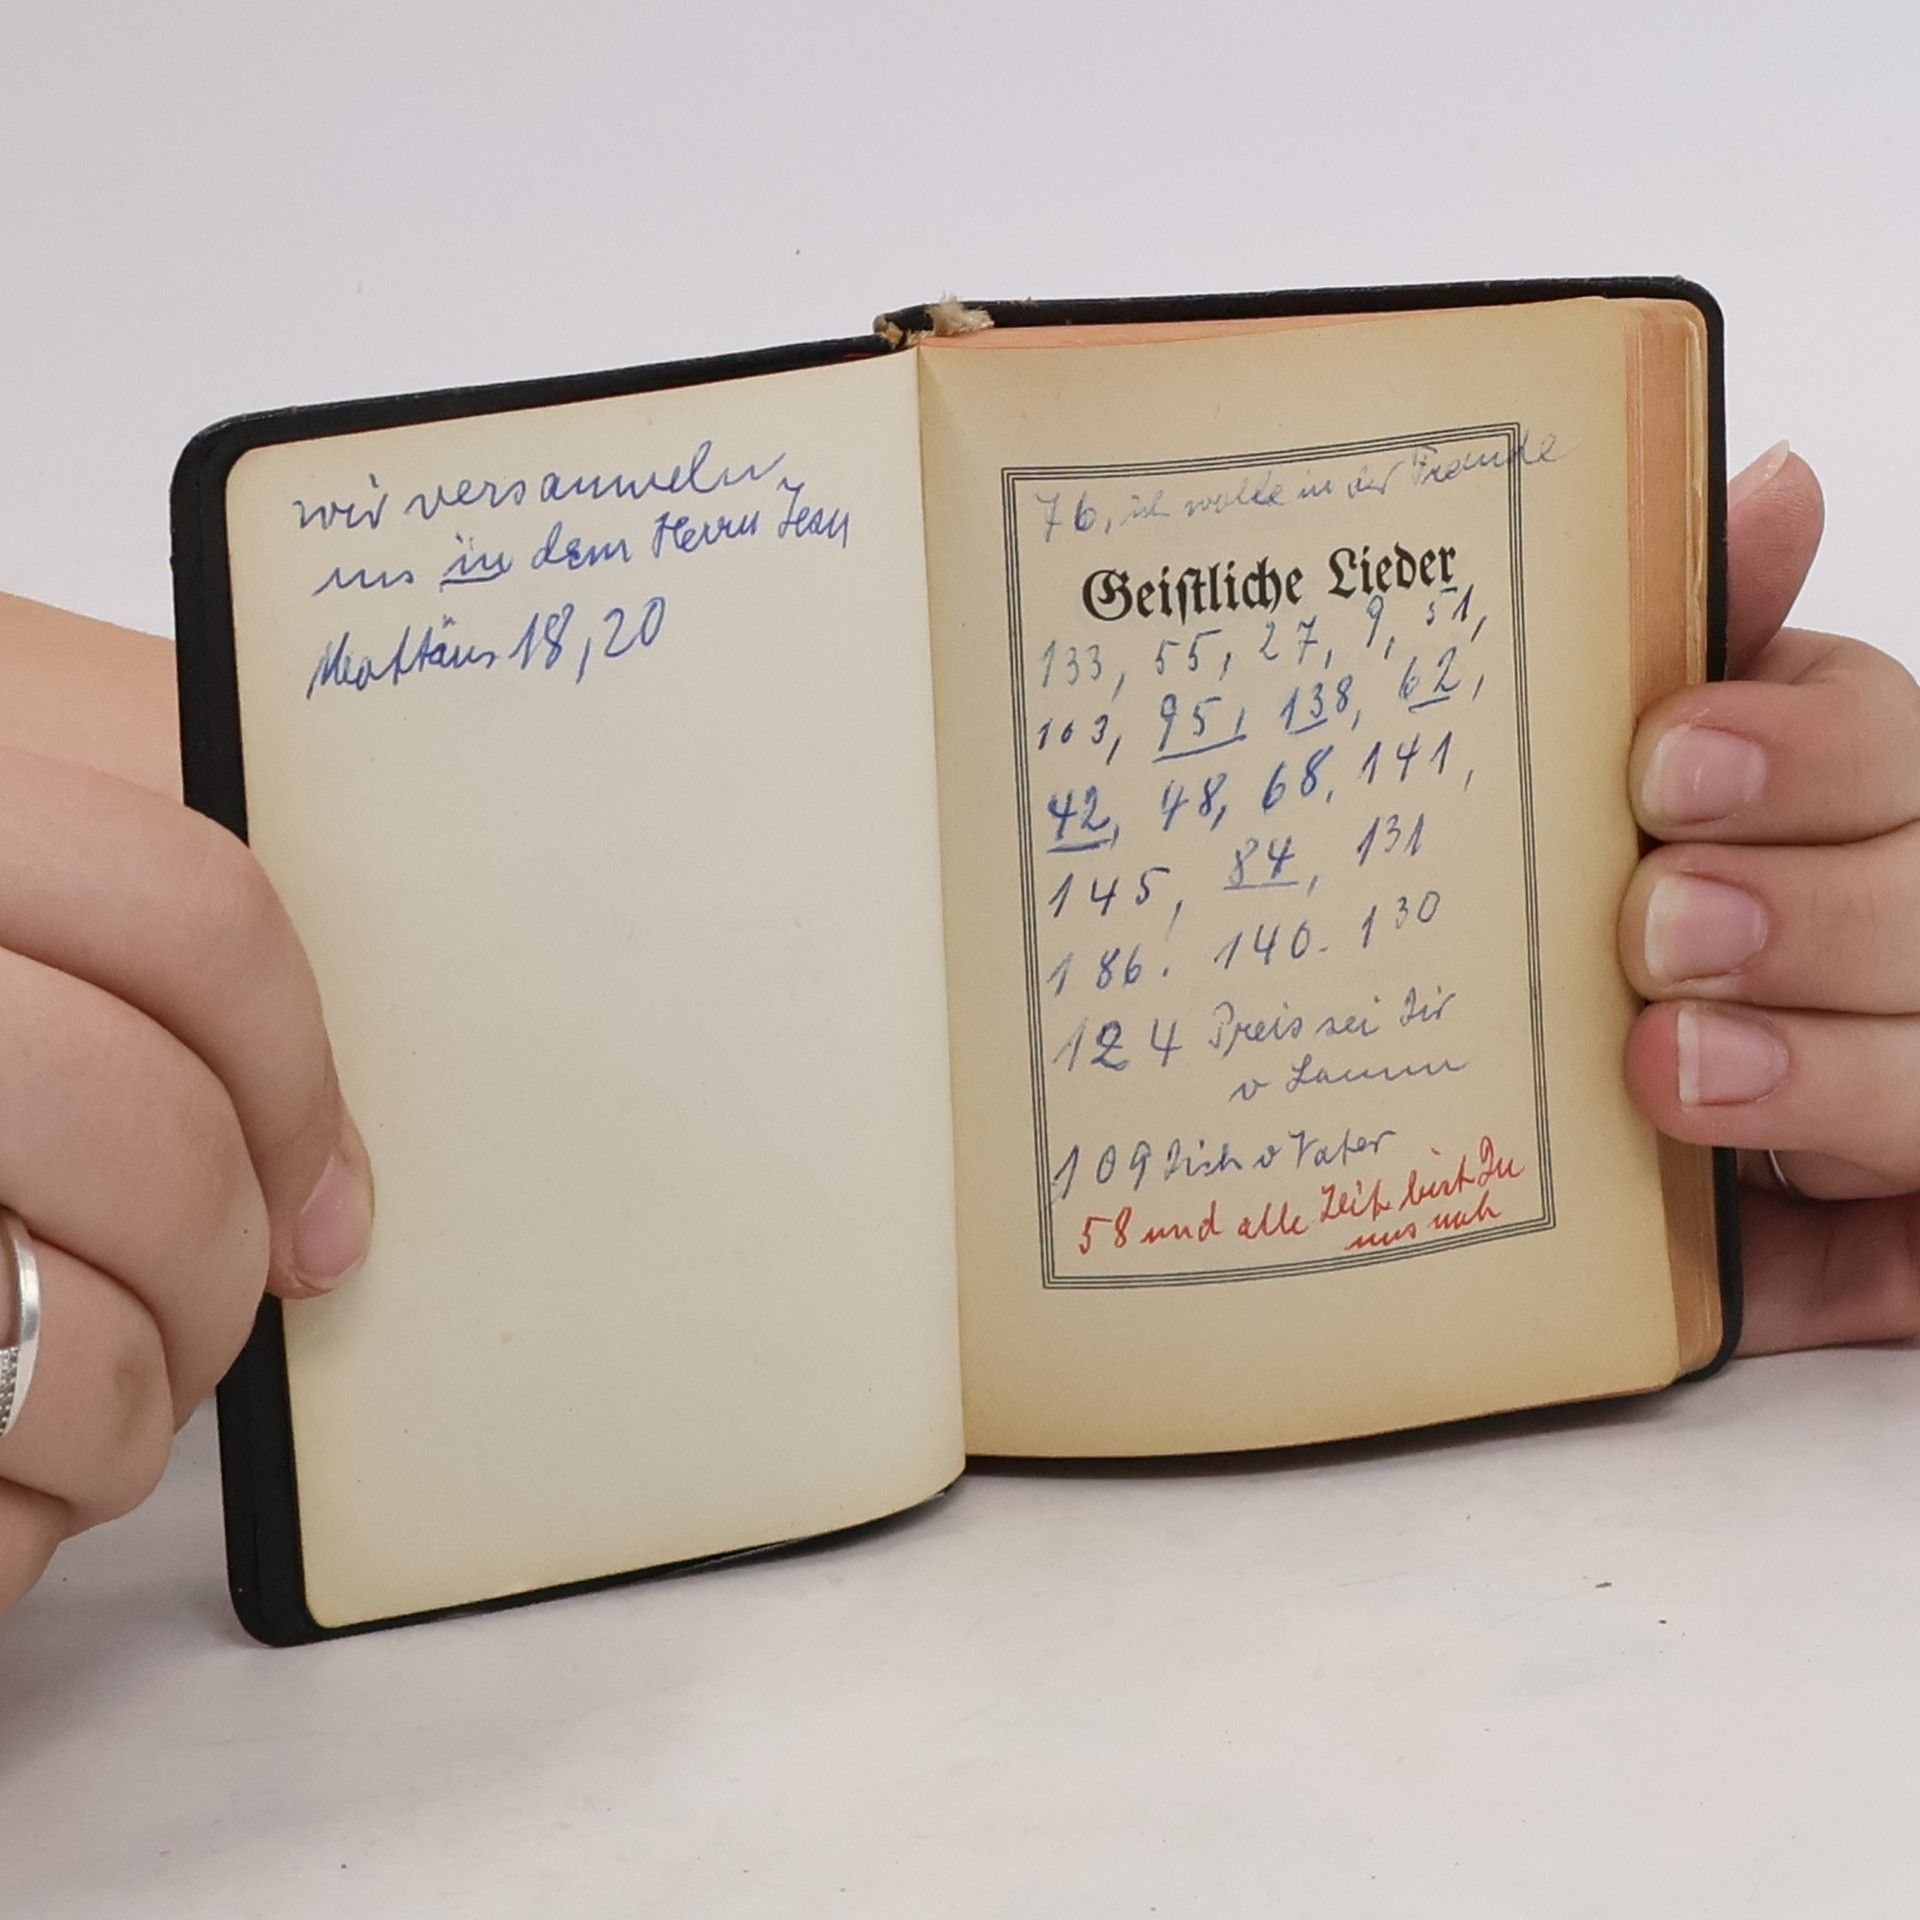 wir versammeln
uns in dem Herrn Jesu
Matthäus 18,20
76, ich walle in der Fremde
Geistliche Lieder
133, 55, 27, 9, 51,
103, 95, 138, 62,
42, 48, 68, 141,
145, 84, 131
186. 140. 130
124 Preis sei Dir
o Lamm
109 Dich o Vater
58 und alle Zeit bist Du
uns nah